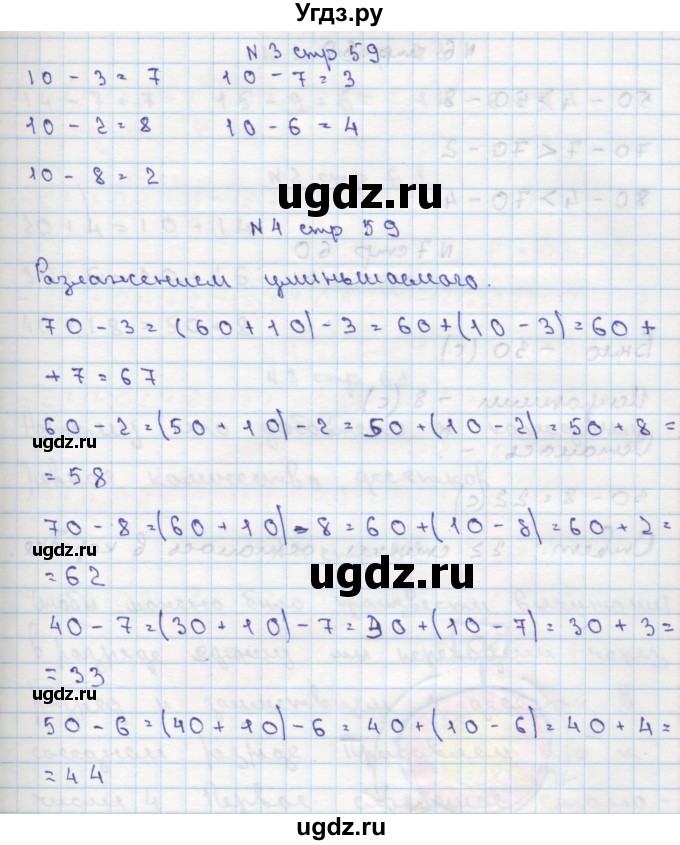 Угдз.ру
N 3 стр 59
10 - 3 = 7 10 - 7 = 3
10 - 2 = 8 10 - 6 = 4
10 - 8 = 2
ugdz.ru
N 4 стр 59
Разлажением уминьшаемого.
70 - 3 = (60 + 10) - 3 = 60 + (10 - 3) = 60 +
+ 7 = 67
60 - 2 = (50 + 10) - 2 = 50 + (10 - 2) = 50 + 8 =
ugdz.ru
= 58
70 - 8 = (60 + 10) - 8 = 60 + (10 - 8) = 60 + 2 =
= 62
ugdz.ru
40 - 7 = (30 + 10) - 7 = 30 + (10 - 7) = 30 + 3 =
= 33
ugdz.ru
50 - 6 = (40 + 10) - 6 = 40 + (10 - 6) = 40 + 4 =
= 44
ugdz.ru
ugdz.ru